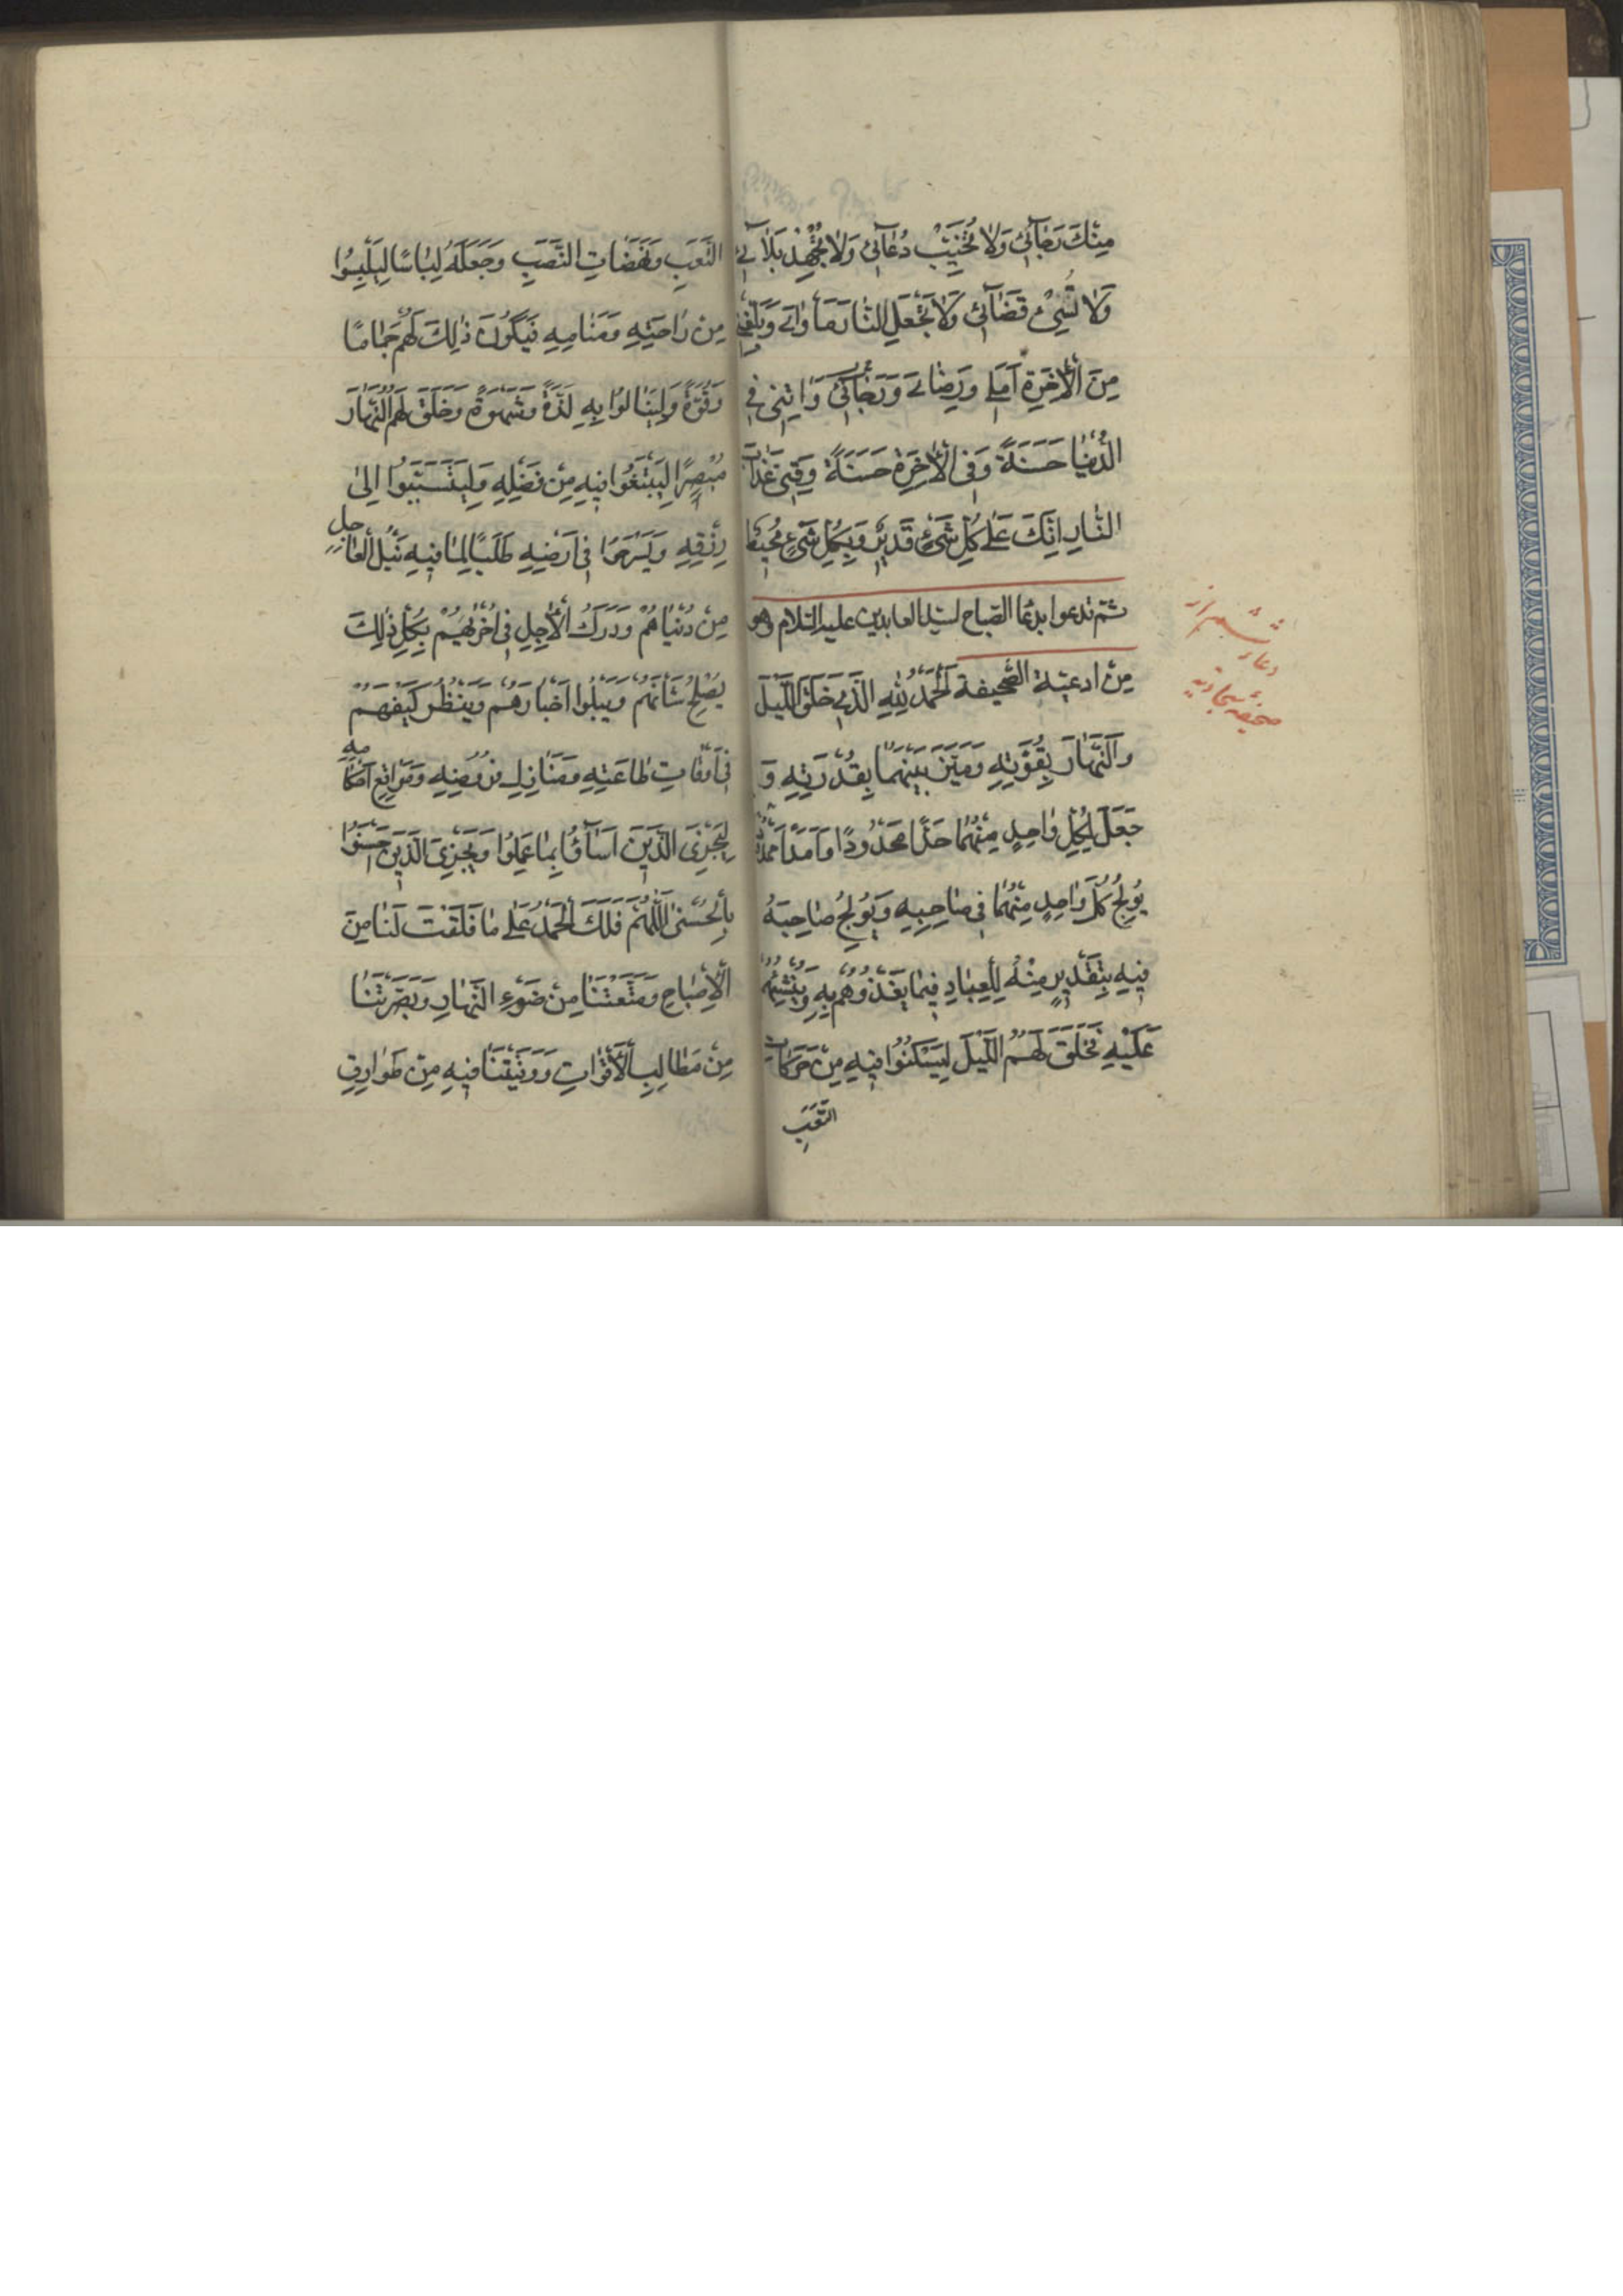 مِنْكَ رَجَائِي وَلَا تُخَيِّبْ دُعَائِي وَلَا تُجْهِدْ بَلَائِي
وَلَا تُسِئْ قَضَائِي وَلَا تَجْعَلِ النَّارَ مَأْوَايَ وَبَلِّغْنِي
مِنَ الْآخِرَةِ أَمَلِي وَرِضَايَ وَرَجَائِي وَآتِنِي فِي
الدُّنْيَا حَسَنَةً وَفِي الْآخِرَةِ حَسَنَةً وَقِنِي عَذَابَ
النَّارِ إِنَّكَ عَلَى كُلِّ شَيْءٍ قَدِيرٌ وَبِكُلِّ شَيْءٍ مُحِيطٌ
ثم تدعوا بدعا الصباح لسيد العابدين عليه السلام وهو
مِنْ ادعية الصحيفة اَلْحَمْدُ لِلّٰهِ الَّذِي خَلَقَ اللَّيْلَ
وَالنَّهَارَ بِقُوَّتِهِ وَمَيَّزَ بَيْنَهُمَا بِقُدْرَتِهِ وَ
جَعَلَ لِكُلِّ وَاحِدٍ مِنْهُمَا حَدًّا مَحْدُودًا وَاَمَدًا مَمْدُودًا
يُولِجُ كُلَّ وَاحِدٍ مِنْهُمَا فِي صَاحِبِهِ وَيُولِجُ صَاحِبَهُ
فِيهِ بِتَقْدِيرٍ مِنْهُ لِلْعِبَادِ فِيمَا يَغْذُوهُمْ بِهِ وَيُنْشِئُهُمْ
عَلَيْهِ فَخَلَقَ لَهُمُ اللَّيْلَ لِيَسْكُنُوا فِيهِ مِنْ حَرَكَاتِ
التَّعَبِ
دعاء
صحيفه سجاديه
التَّعَبِ وَنَهَضَاتِ النَّصَبِ وَجَعَلَهُ لِبَاسًا لِيَلْبَسُوا
مِنْ رَاحَتِهِ وَمَنَامِهِ فَيَكُونَ ذٰلِكَ لَهُمْ جَمَامًا
وَقُوَّةً وَلِيَنَالُوا بِهِ لَذَّةً وَشَهْوَةً وَخَلَقَ لَهُمُ النَّهَارَ
مُبْصِرًا لِيَبْتَغُوا فِيهِ مِنْ فَضْلِهِ وَلِيَتَسَبَّبُوا اِلٰى
رِزْقِهِ وَيَسْرَحُوا فِي اَرْضِهِ طَلَبًا لِمَا فِيهِ نَيْلُ الْعَاجِلِ
مِنْ دُنْيَاهُمْ وَدَرَكُ الْآجِلِ فِي اُخْرٰيهُمْ بِكُلِّ ذٰلِكَ
يُصْلِحُ شَأْنَهُمْ وَيَبْلُوا اَخْبَارَهُمْ وَيَنْظُرُ كَيْفَ هُمْ
فِي اَوْقَاتِ طَاعَتِهِ وَمَنَازِلِ فُرُوضِهِ وَمَوَاقِعِ اَحْكَامِهِ
لِيَجْزِيَ الَّذِينَ اَسَآؤُا بِمَا عَمِلُوا وَيَجْزِيَ الَّذِينَ اَحْسَنُوا
بِالْحُسْنَى اَللّٰهُمَّ فَلَكَ الْحَمْدُ عَلٰى مَا فَلَقْتَ لَنَا مِنَ
الْاِصْبَاحِ وَمَتَّعْتَنَا مِنْ ضَوْءِ النَّهَارِ وَبَصَّرْتَنَا
مِنْ مَطَالِبِ الْاَقْوَاتِ وَوَقَيْتَنَا فِيهِ مِنْ طَوَارِقِ